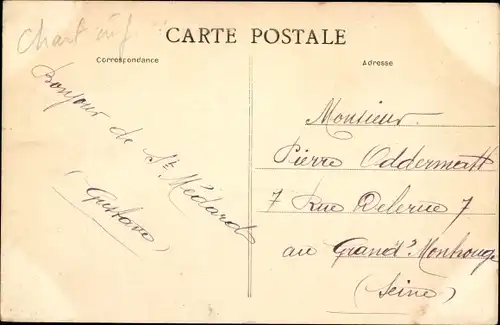 CARTE POSTALE
Correspondance
Bonjour de St Médard
(Gustave)
Adresse
Monsieur
Pierre Oddermatt
7 Rue Delerue 7
au Grand Montrouge
(Seine)